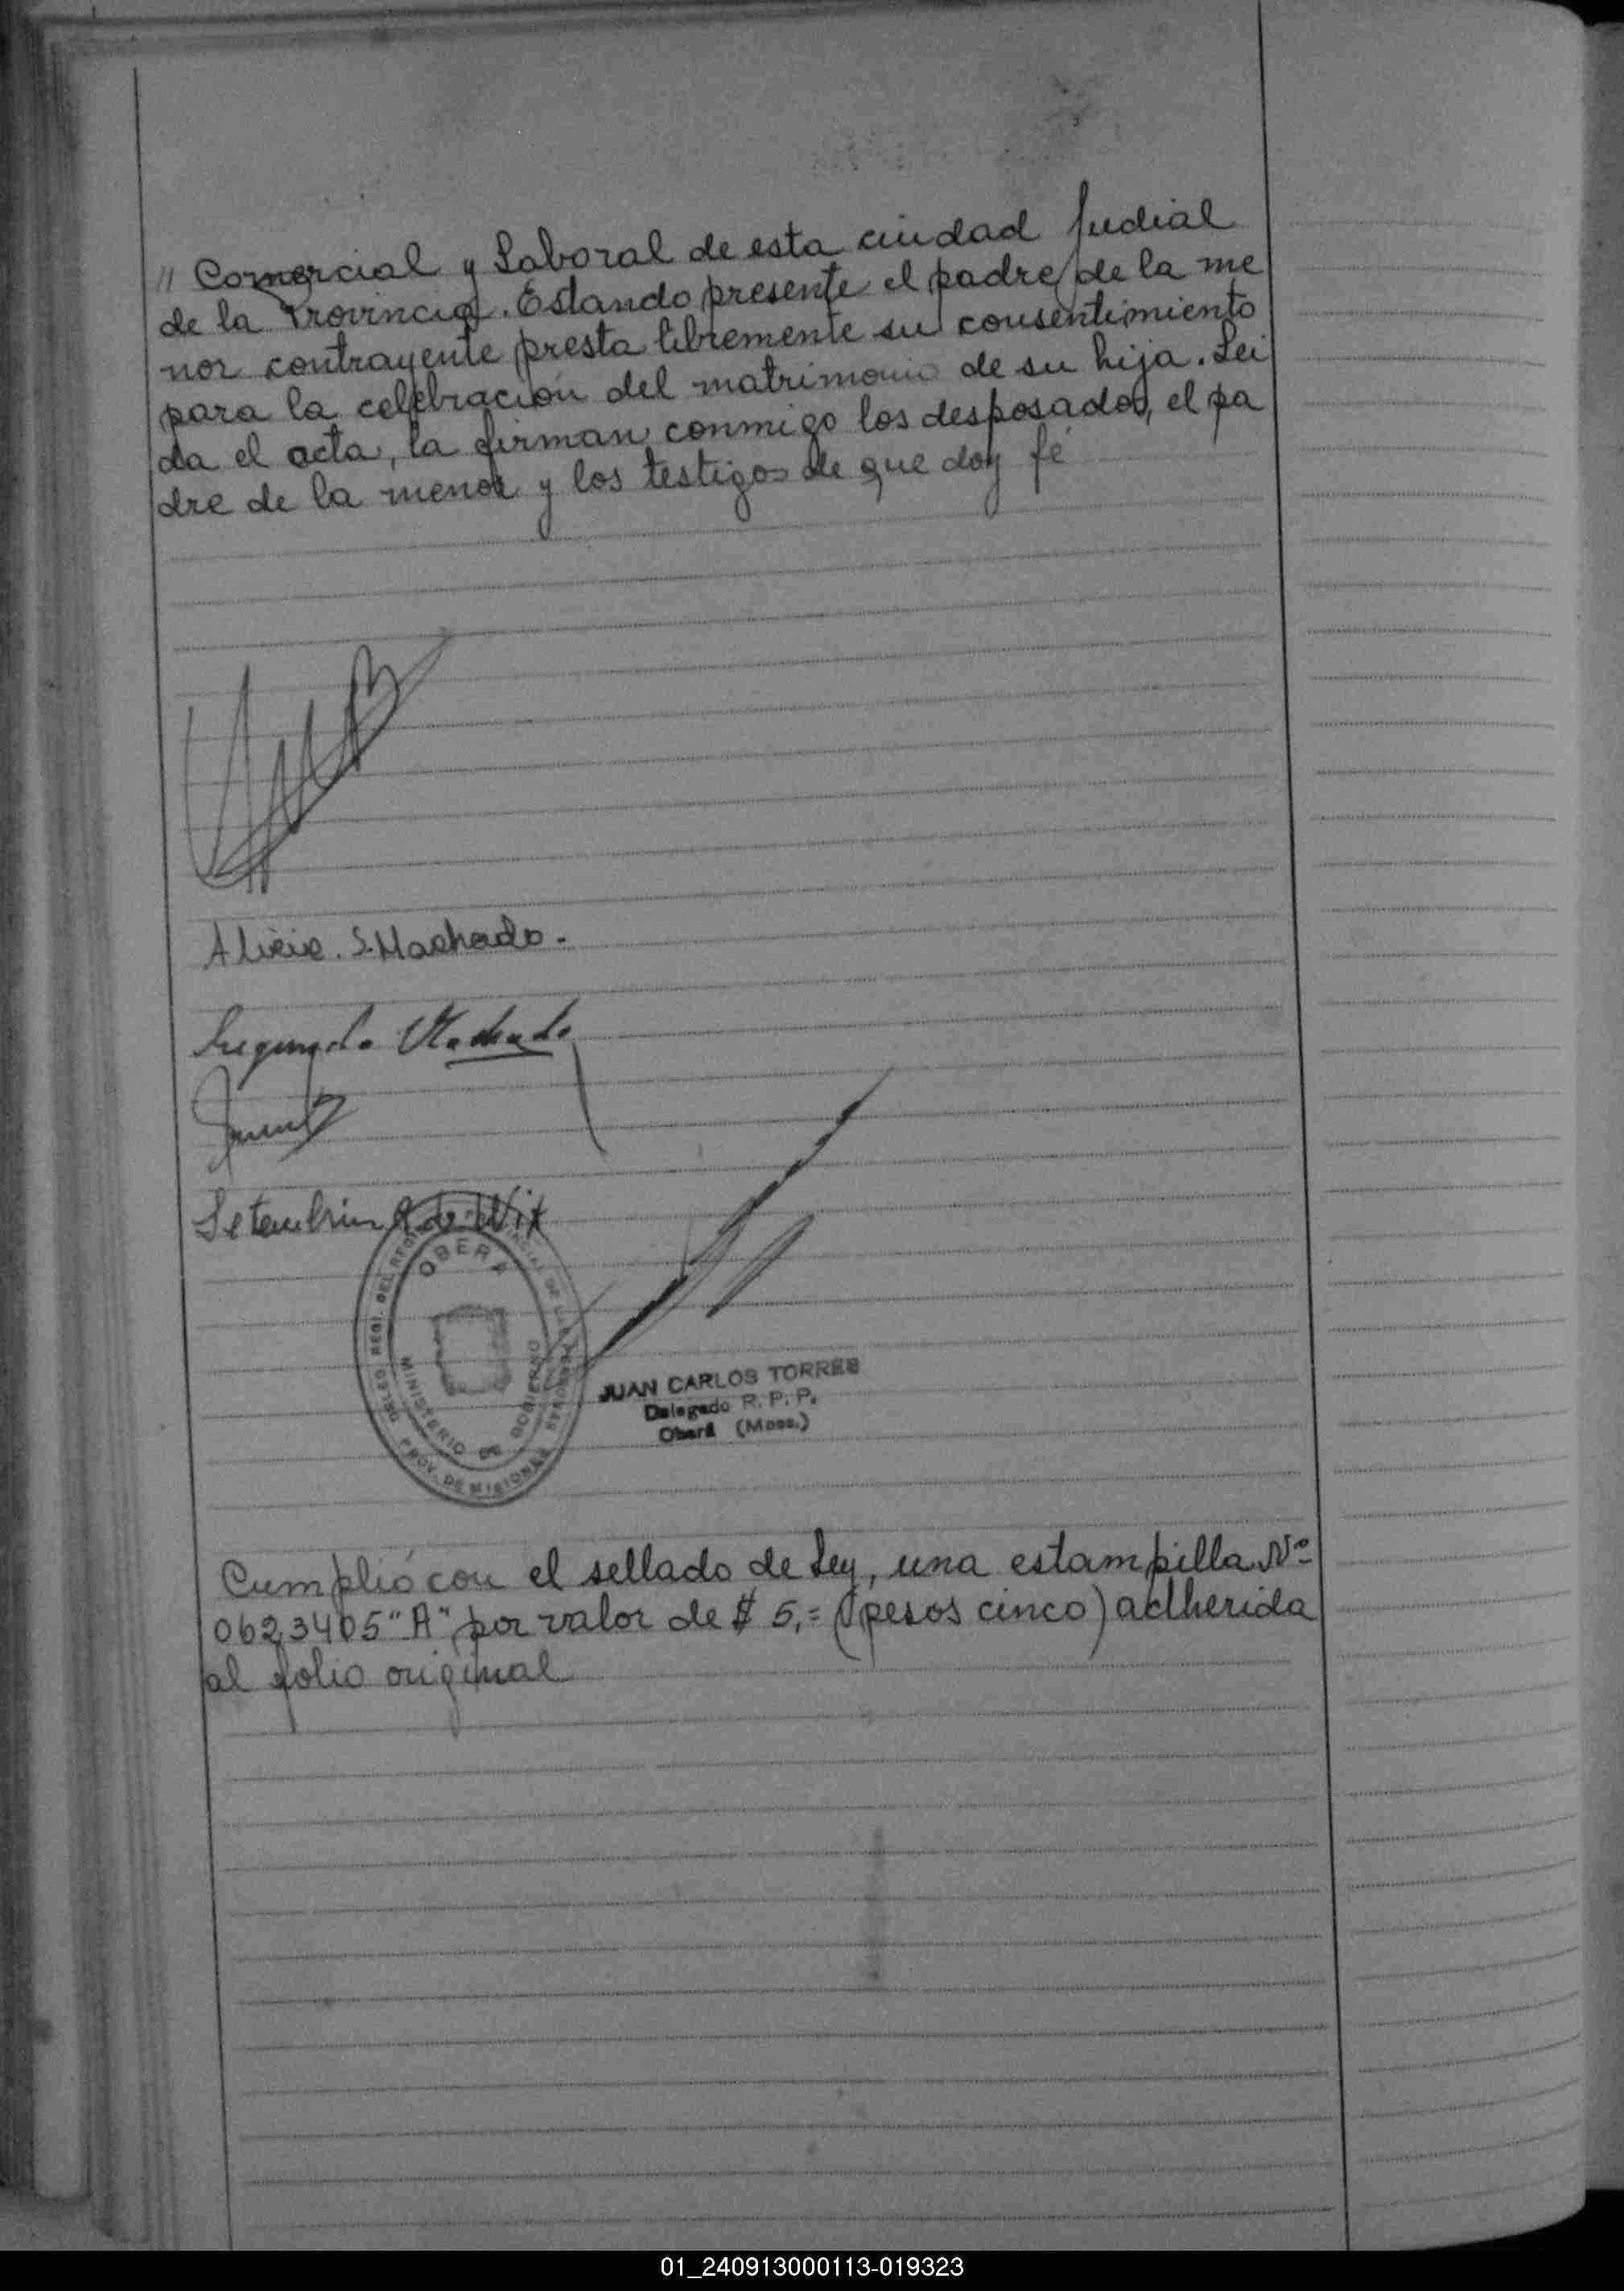 // Comercial y Laboral de esta ciudad Judial
de la Provincia. Estando presente el padre de la me
nor contrayente presta libremente su consentimiento
para la celebración del matrimonio de su hija. Lei
da el acta, la firman conmigo los desposados, el pa
dre de la menor y los testigos de que doy fé
Alicia. S. Machado.
Segundo Machado
Setembrina R. de Wix
OBERA
MINISTERIO DE GOBIERNO
PROV. DE MISIONES
JUAN CARLOS TORRES
Delegado R. P. P.
Oberá (Mnes.)
Cumplió con el sellado de Ley, una estampilla Nº
0623405 "A" por valor de $ 5,= (pesos cinco) adherida
al folio original
01_240913000113-019323